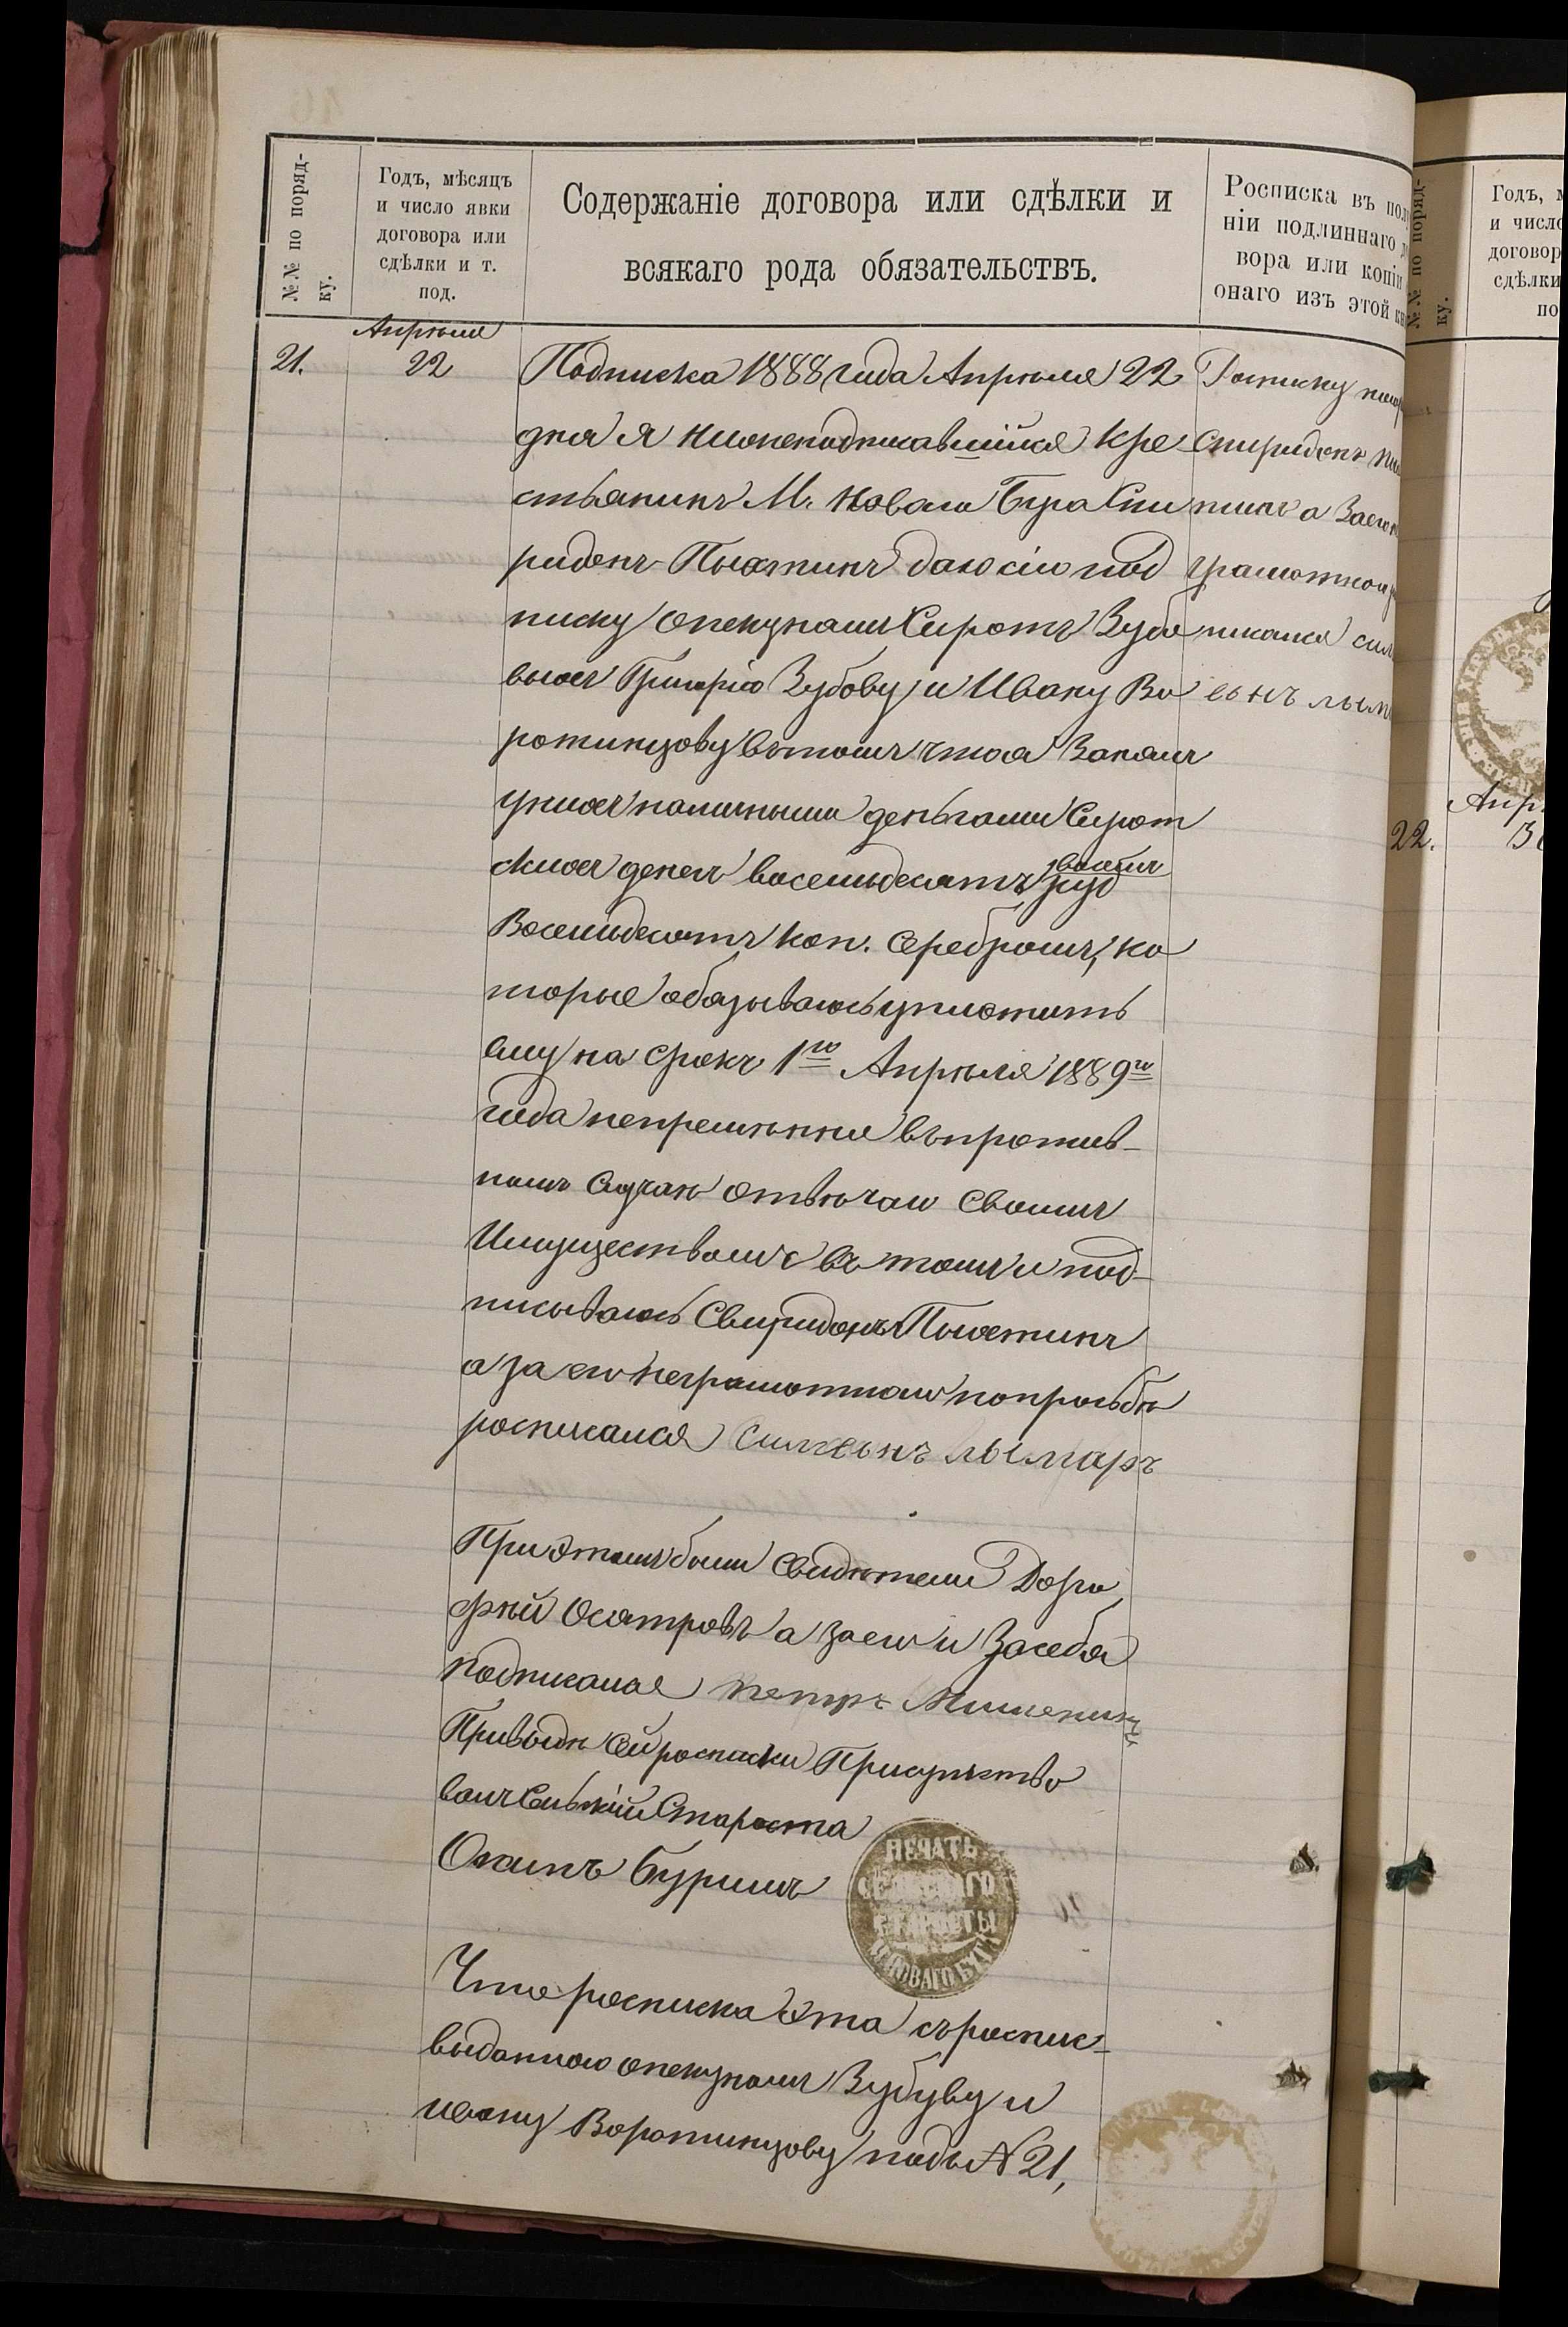 №№ по поряд-
ку.
Годъ, мѣсяцъ
и число явки
договора или
сдѣлки и т.
под.
Содержаніе договора или сдѣлки и
всякаго рода обязательствъ.
Росписка въ пол
ніи подлиннаго
вора или копіи
онаго изъ этой
21.
Апрѣля
22
Подписка 1888 года Апрѣля 22
дня я нижеподписавшійся Кре
стьянинъ М. Новаго Буга Спи
ридонъ Пыхтинъ даю сію под
писку опекунамъ Сиротъ Зубо
выхъ Григорію Зубову и Ивану Во
ротинцову вътомъ что я Занялъ
унихъ наличными деньгами Сирот
скихъ денегъ восемьдесятъ восемь руб
Восемьдесятъ коп. серебромъ, ко
торые обязываюсь уплотить
ему на срокъ 1го Апрѣля 1889го
года непремѣнно въпротив-
номъ случаѣ отвѣчаю своимъ
Имуществомъ въ томъ и под-
писываюсь Свиридонъ Пыхтинъ
а за его неграмотнаго попросьбѣ
росписался Симеонъ лымарь
При этомъ были свидѣтели Доро
фѣй Осятровъ а заего и Засебя
подписался петръ
Привыдѣ сей росписки Присуцтво
валъ Сельскій Староста
Осипъ Буримъ
ПЕЧАТЬ
СЕЛЬСКАГО
СТАРОСТЫ
НОВАГО БУГА
Что росписка эта съроспис-
выданною опекунамъ Зубуву и
ивану Воротинцову подъ №21,
Росписку
Спиридонъ
тинъ а Заего
грамотного
писался сим
еонъ лым
№№ по поряд-
ку.
Годъ,
и число
договор
сдѣлки
по
22.
Апр